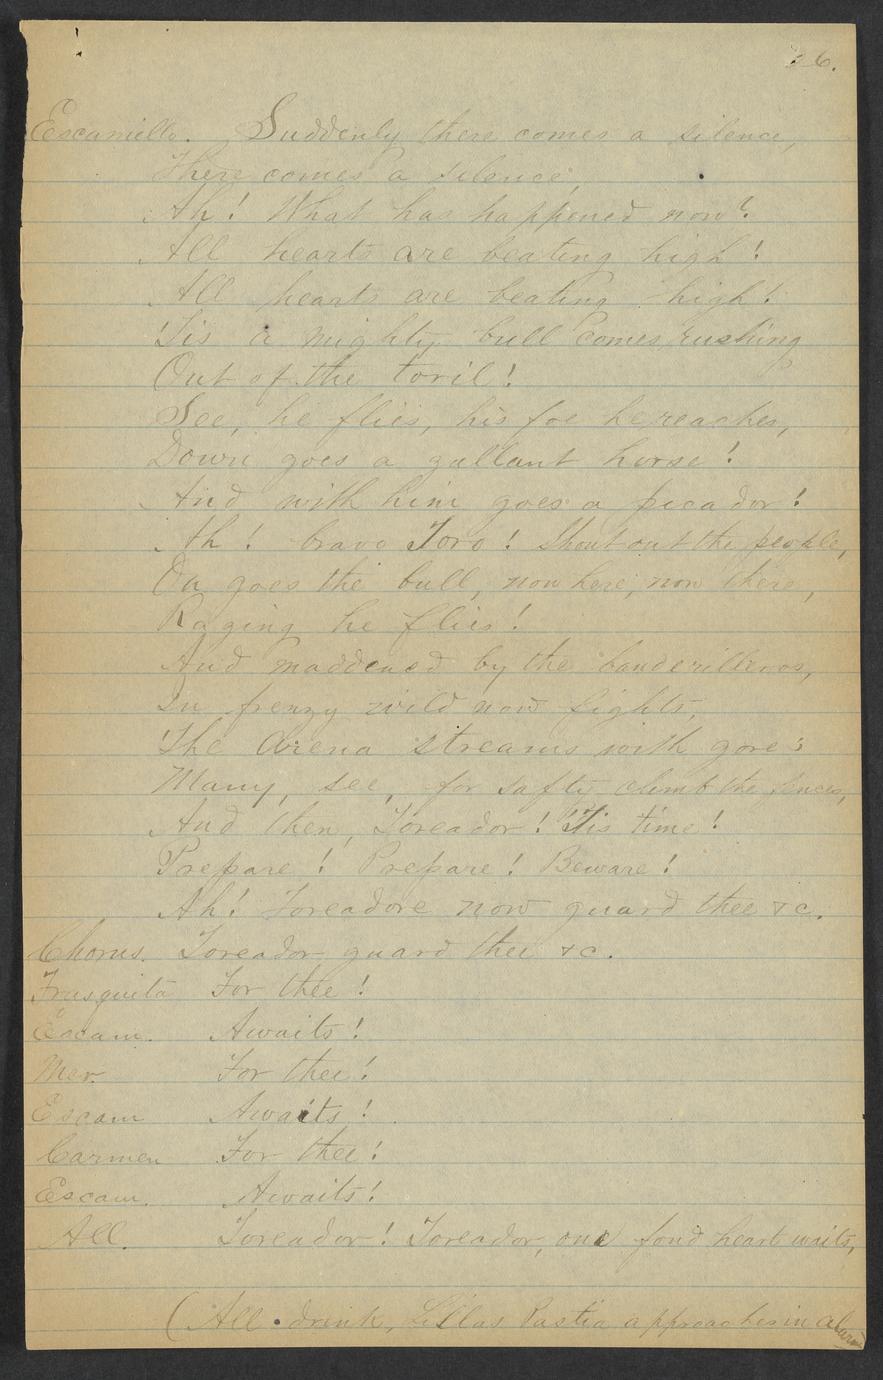 26.
Escamillo. Suddenly there comes a silence,
There comes a silence,
Ah! What has happened now?
All hearts are beating high!
All hearts are beating high!
'Tis a mighty bull comes rushing
Out of the toril!
See, he flies, his foe he reaches,
Down goes a gallant horse!
And with him goes a picador!
Ah! bravo Toro! Shout out the people,
On goes the bull, now here, now there,
Raging he flies!
And maddened by the banderilleros,
In frenzy wild now fights,
The Arena streams with gore;
Many, see, for safty climb the fences,
And then, Toreador! 'Tis time!
Prepare! Prepare! Beware!
Ah! Toreadore now guard thee &c.
Chorus. Toreador guard thee &c.
Frasquita For thee!
Escam. Awaits!
Mer. For thee!
Escam Awaits!
Carmen For thee!
Escam. Awaits!
All. Toreador! Toreador, one fond heart waits,
(All drink, Lillas Pastia approaches in alarm